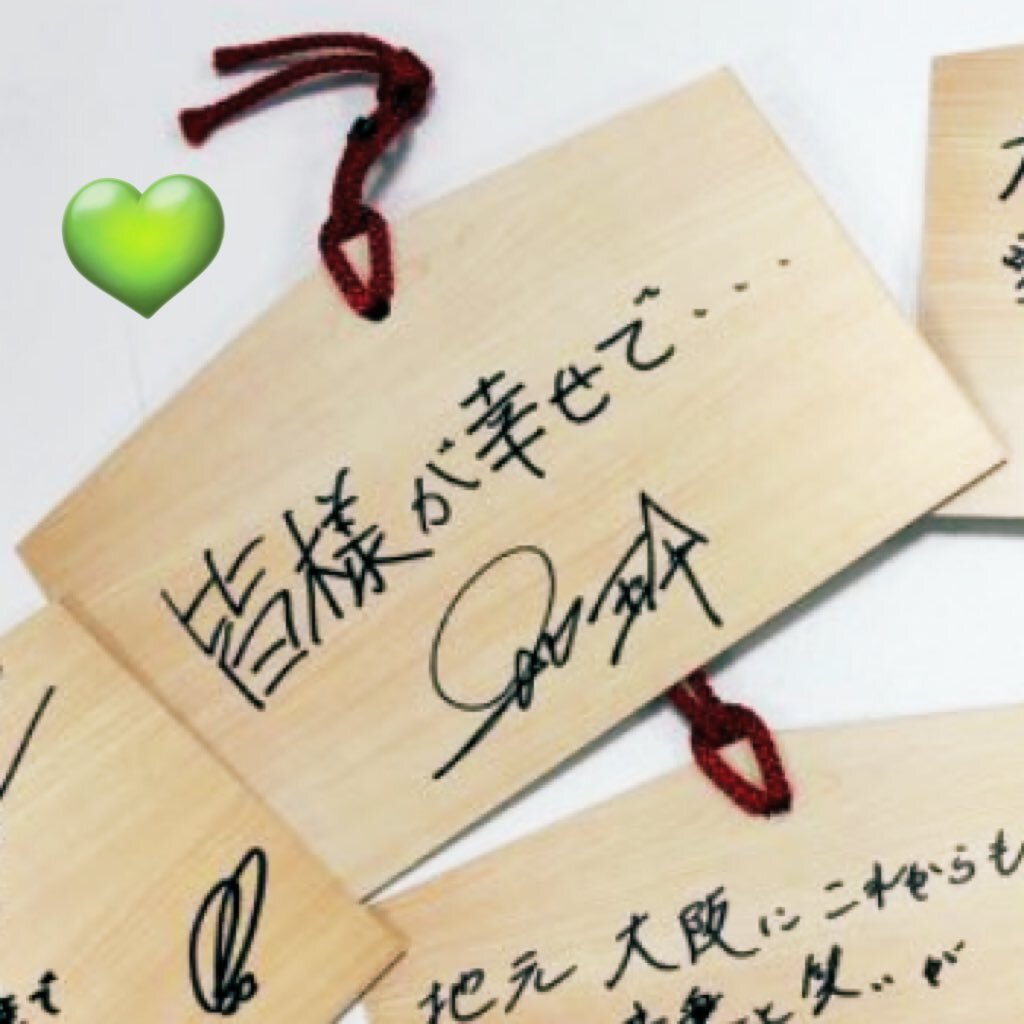 皆様が幸せで...
地元 大阪にこれからも
笑いが